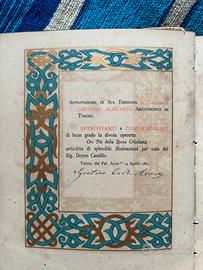 Approvazione di Sua Eminenza il Cardinale
GAETANO ALIMONDA Arcivescovo di
Torino.
APPROVIAMO e COMMENDIAMO
di buon grado la divota operetta
Ore Pie della Sposa Cristiana,
arricchita di splendide illustrazioni per cura del
Sig. Doyen Camillo.
Torino, dal Pal. Arciv.le 14 Aprile 188
Gaetano Card. Arciv.